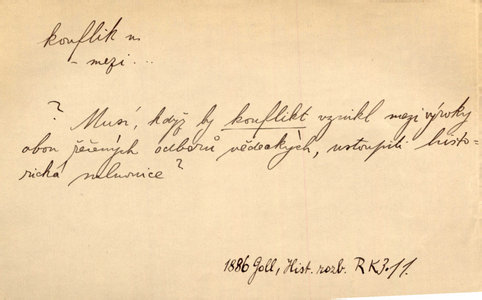 konflikt m.
- mezi...
? Musí, když by konflikt vznikl mezi výroky
obou řečených odborů vědeckých, ustoupiti histo-
rická mluvnice?
1886 Goll, Hist. rozb. RK